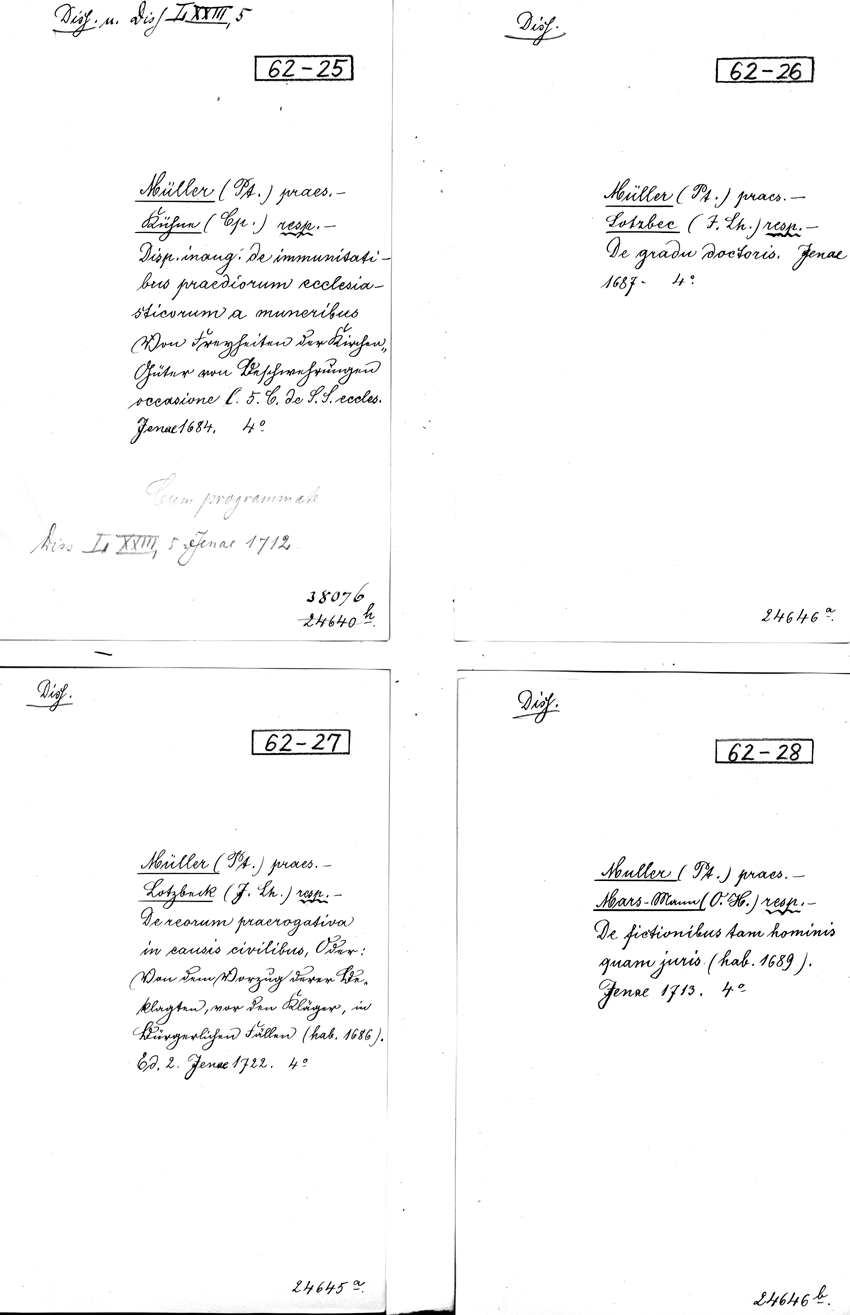 Diss. u. Diss L XXIII, 5
62-25
Müller (Pt.) praes. –
Kühne (Cp.) resp. –
Disp. inaug. de immunitati-
bus praediorum ecclesia-
sticorum a muneribus
Von Freyheiten der Kirchen-
Güter von Beschwehrungen
occasione l. 5. C. de S. S. eccles.
Jenae 1684. 4°
Cum programmate
Diss L XXIII, 5 Jenae 1712
38076
24640 h.
Diss.
62-26
Müller (Pt.) praes. –
Lotzbec (J. Ch.) resp. –
De gradu doctoris. Jenae
1687. 4°
24646 a.
Diss.
62-27
Müller (Pt.) praes. –
Lotzbeck (J. Ch.) resp. –
De reorum praerogativa
in causis civilibus, Oder:
Von dem Vorzug derer Be-
klagten, vor den Kläger, in
Bürgerlichen Fällen (hab. 1686).
Ed. 2. Jenae 1722. 4°
24645 a.
Diss.
62-28
Muller (Pt.) praes. –
Mars-Mann (O. H.) resp. –
De fictionibus tam hominis
quam juris (hab. 1689).
Jenae 1713. 4°
24646 b.